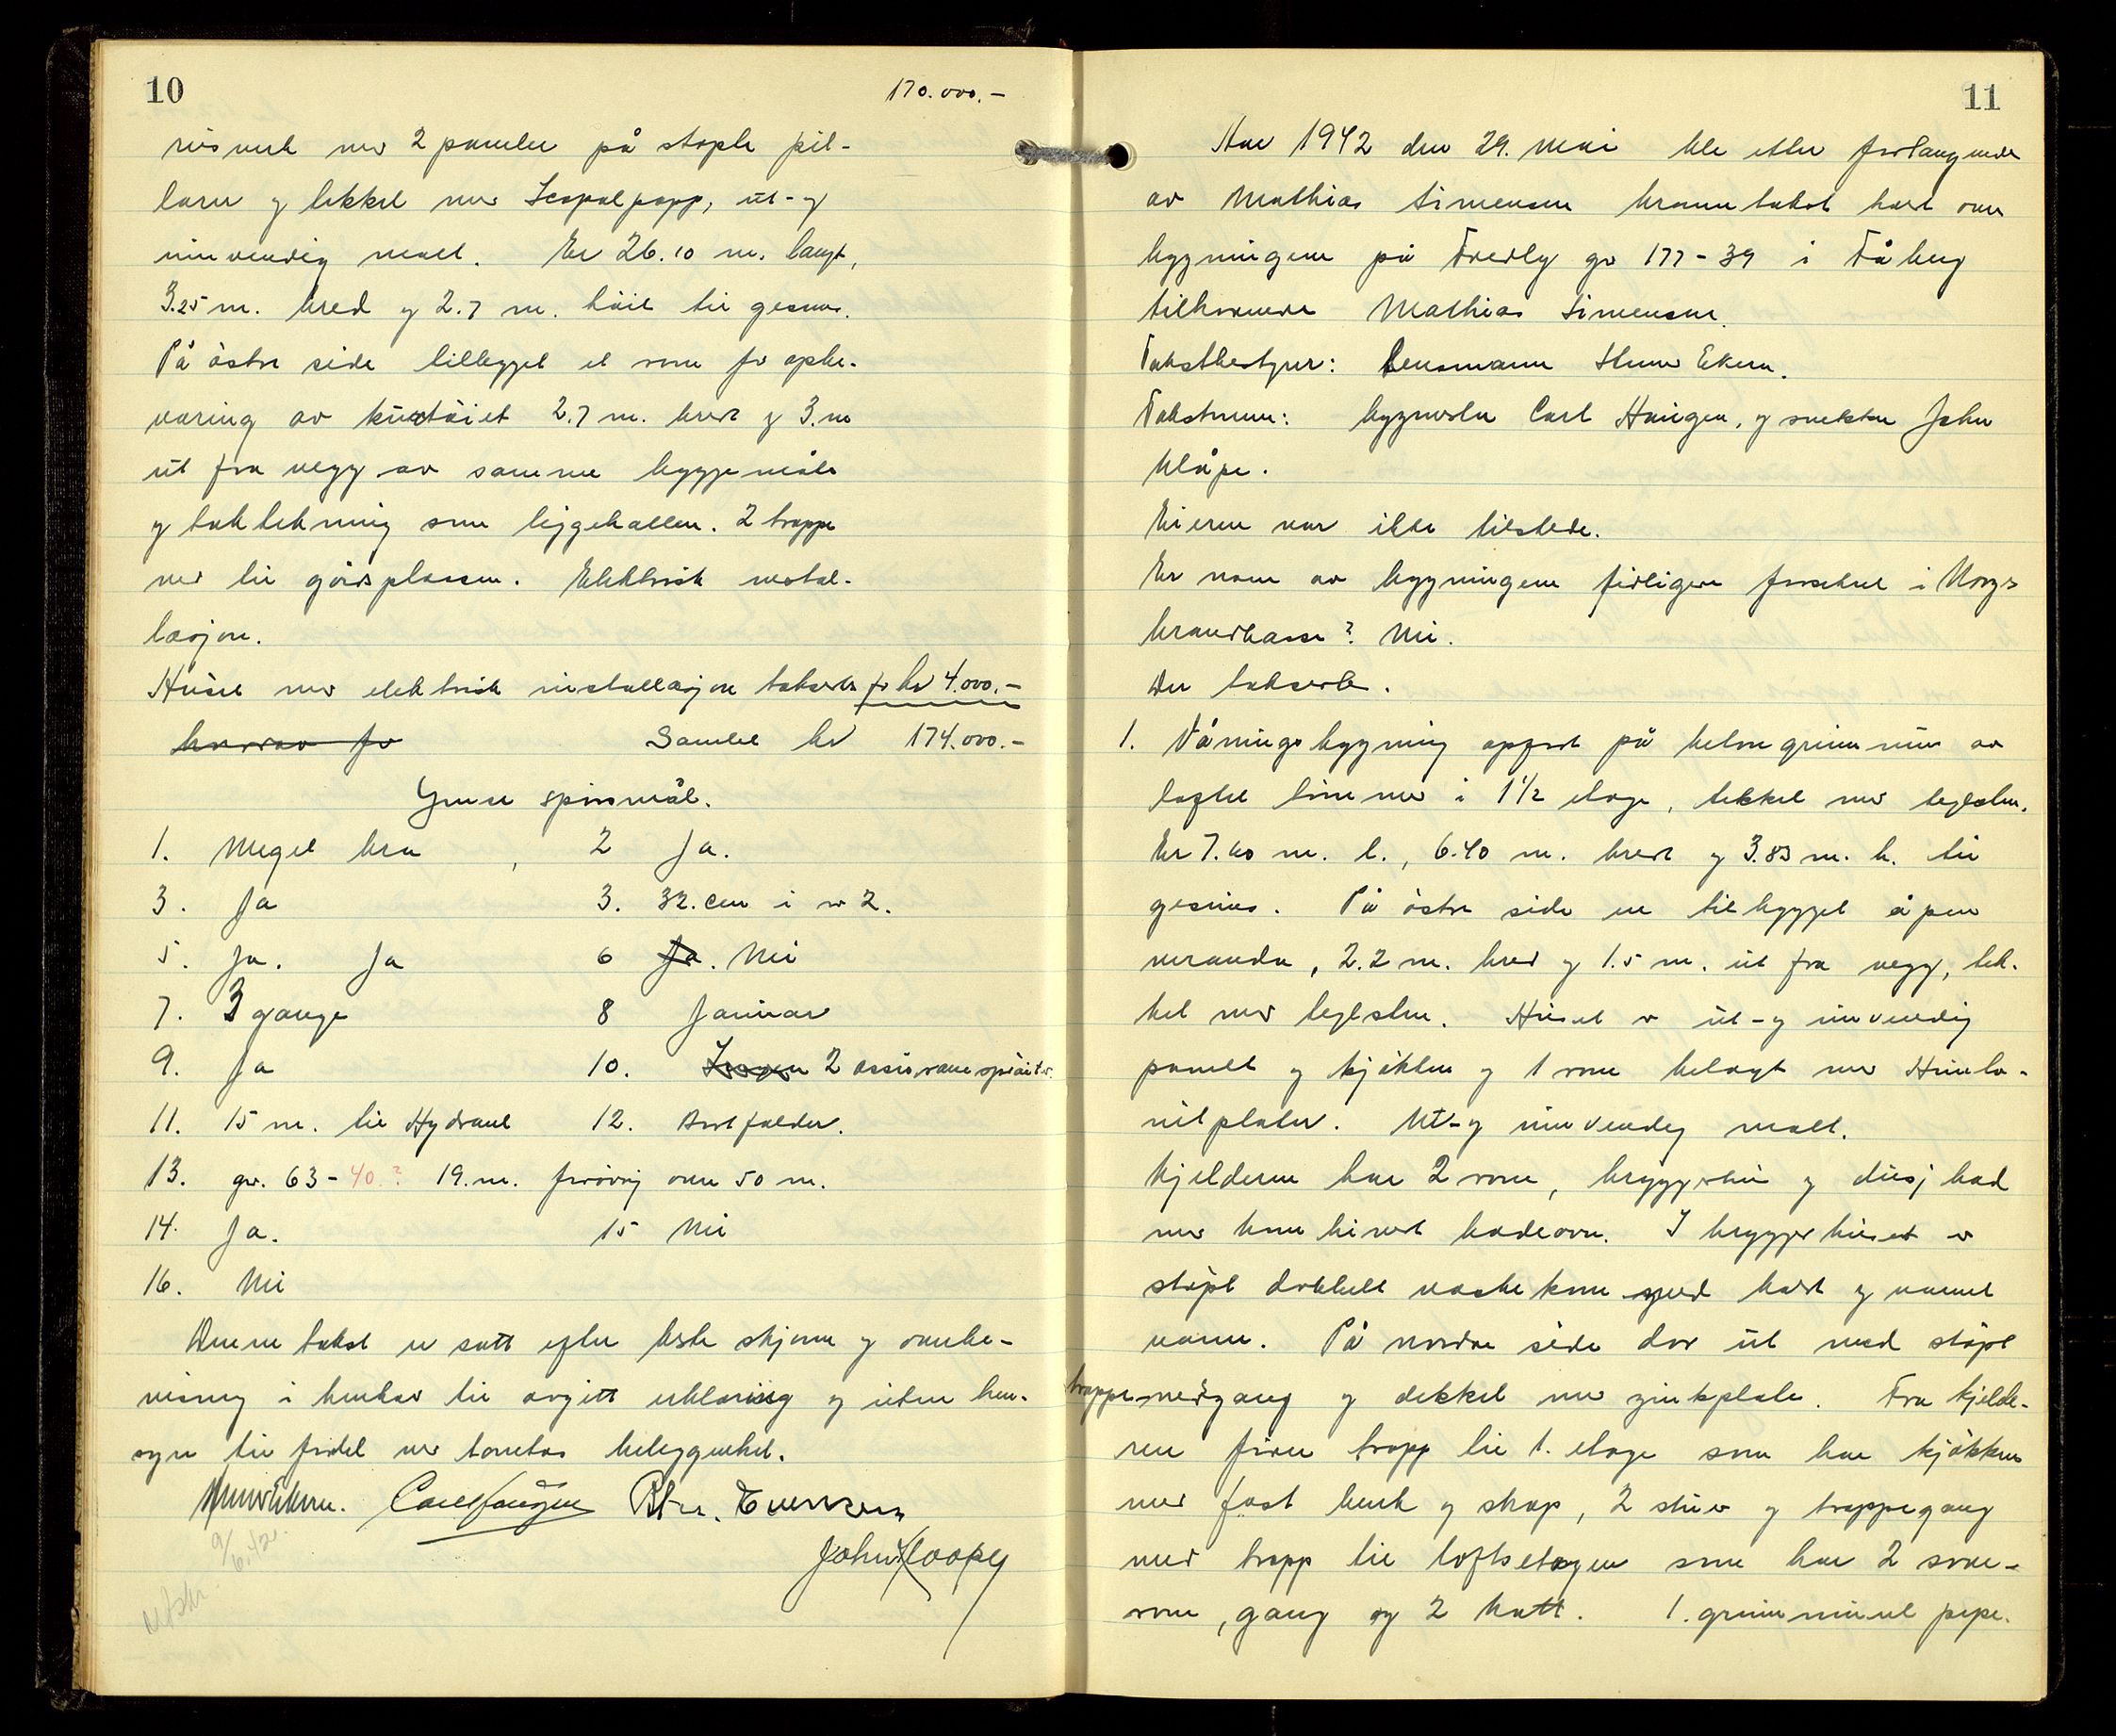 10
170.000.-
reisverk med 2 paneler på støpte pil-
larer og tekket med Icopalpapp, ut- og
innvendig malt. Er 26.10 m. langt,
3.25 m. bred og 2.7 m. høit til gesims.
På østre side tilbygget et rom for opbe-
varing av kurtøiet 2.7 m. bredt og 3. m
ut fra vegg av samme byggemåte
og taktekning som liggehallen. 2 trapper
ned til gårdsplassen. Elektrisk instal-
lasjon.
Huset med elektrisk installasjon takseres for kr 4.000.-
hvorav for Samlet kr 174.000.-
Ymse spørsmål.
1. Meget bra , 2 Ja.
3. Ja 3. 32. cm i nr 2.
5. Ja. Ja 6 Ja. Nei
7. 3 gange 8 Januar
9. Ja 10. 2 assuransesprøiter.
11. 15 m. til Hydrant 12. Bortfalder.
13. gnr. 63-40.? 19. m. forøvrig over 50 m.
14. Ja. 15 Nei
16. Nei
Denne takst er satt efter beste skjønn og overbe-
visning i henhold til avgitt erklæring og uten hen-
syn til fordel ved tomtens beliggenhet.
Carl Haugen
John Kloopy
9/6.42.
utskr.
11
Aar 1942 den 29. Mai ble etter forlangende
av Mathias Simensen branntakst holdt over
bygningene på Fredly gnr 177-39 i Fåberg
tilhørende Mathias Simensen.
Takstbestyrer: Lensmann Ekern.
Takstmenn: byggmester Carl Haugen, og snekker John
Klåpe.
Eieren var ikke tilstede.
Er noen av bygningene tidligere forsikret i Norges
brandkasse? Nei.
Der takserte.
1. Våningsbygning opført på betongrunnmur av
laftet tømmer i 1 1/2 etage, tekket med teglsten.
Er 7.60 m. l., 6.40 m. bredt og 3.83 m. h. til
gesims. På østre side en tilbygget åpen
veranda, 2.2 m. bred og 1.5 m. ut fra vegg, tek-
ket med teglsten. Huset er ut- og innvendig
panelt og kjøkken og 1 rom belagt med Hunto-
nitplater. Ut- og innvendig malt.
Kjelderen har 2 rom, bryggerhus og dusjbad
med kombinert badeovn. I bryggerhuset er
støpt dobbelt vaskekum med koldt og varmt
vann. På nordre side dør ut med støpt
trappenedgang og dekket med zinkplate. Fra kjelde-
ren fører trapp til 1. etage som har kjøkken
med fast benk og skap, 2 stuer og trappegang
med trapp til loftsetagen som har 2 sove-
rom, gang og 2 kott. 1. grunnmuret pipe.